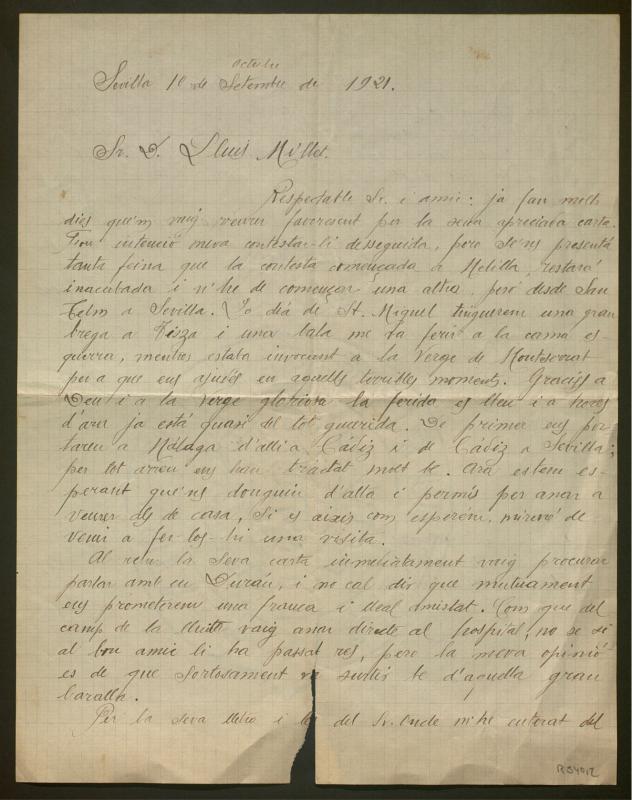 Octubre
Sevilla 10 de Setembre de 1921.
Sr. D. Lluis Millet.
Respectable Sr. i amic: ja fan molts
dies que'm vaig veurer favorescut per la seva apreciada carta.
Fou intenció meva contestar-li desseguida, pero se'ns presentá
tanta feina que la contesta começada a Melilla, restará
inacabada i n'he de começar una altra, peró desde San
Telm a Sevilla. Lo dia de St. Miquel tinguerem una gran
brega a Tisza i una bala me va ferir a la cama es-
querra, mentres estaba invocant a la Verge de Montserrat
per a que ens ajudés en aquells terribles moments. Gracies a
Deu i a la Verge gloriosa la ferida es lleu i a hores
d'ara ja está quasi del tot guarida. De primer ens por-
taren a Málaga d'alli a Cádiz i de Cádiz a Sevilla;
per tot arreu ens han tractat molt be. Ara estem es-
perant que'ns donguin d'alta i permis per anar a
veurer als de casa. Si es aixis com esperem, miraré de
venir a fer-los-hi una visita.
Al rebre la seva carta inmediatament vaig procurar
parlar amb en Durán, i no cal dir que mutuament
ens prometerem una franca i lleal amistat. Com que del
camp de la lluita vaig anar directe al hospital, no se si
al bon amic li ha passat res, pero la meva opinió
es de que sortosament va surtir be d'aquella gran
baralla.
Per la seva lletra i la del Sr. m'he enterat del
R34012